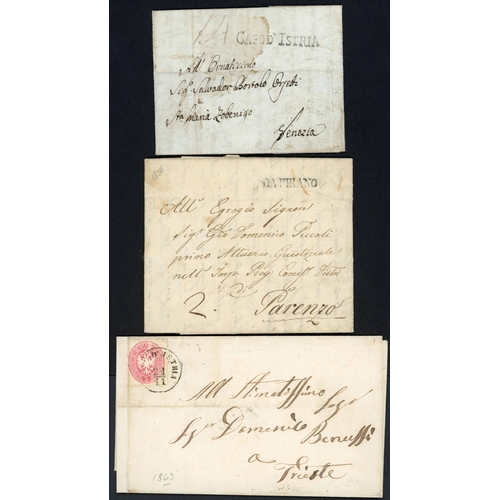 CAPOD'ISTRIA
All' Ornatissimo
Sig.r Salvador Bortolo Orsetti
Sta Maria Zobenigo
Venezia
1836
DA PIRANO
All' Egregio Signore
Sig.r Gio Domenico Piccoli
primo Attuario Giustiziale
nell' Imp. Reg.
2.
Parenzo
D'ISTRIA
24
11
All Stimatissimo Sigr
Sigr Domenico Benussi
a
Trieste
1863